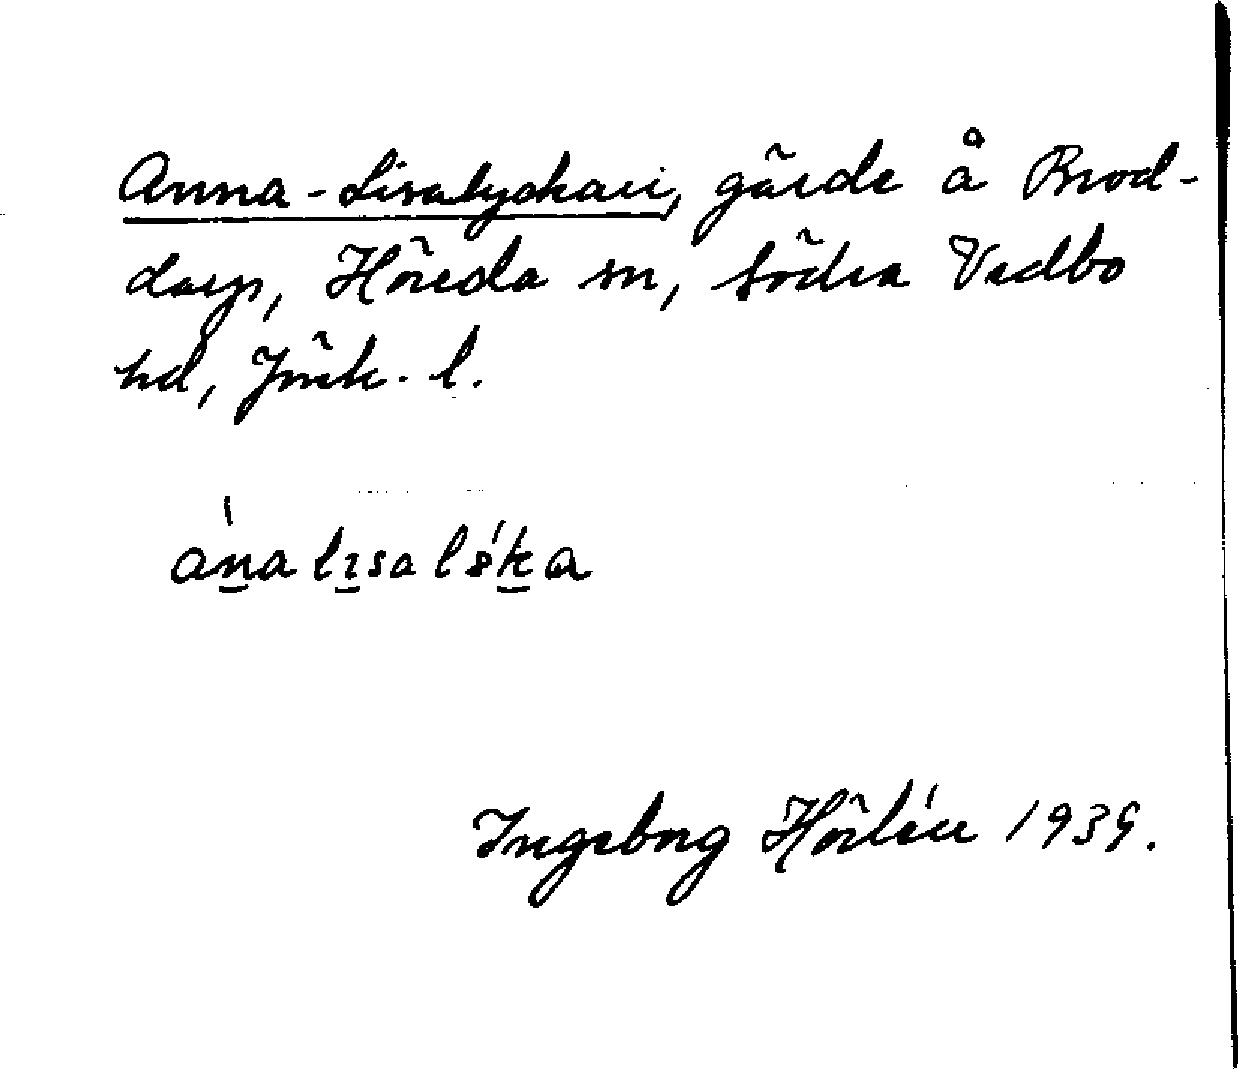 Anna-Lisalyckan, gärde å Brod-
darp, Höreda sn, Södra Vedbo
hd, Jönk. l.
ánalisalǿka
Ingeborg Hörlén 1939.